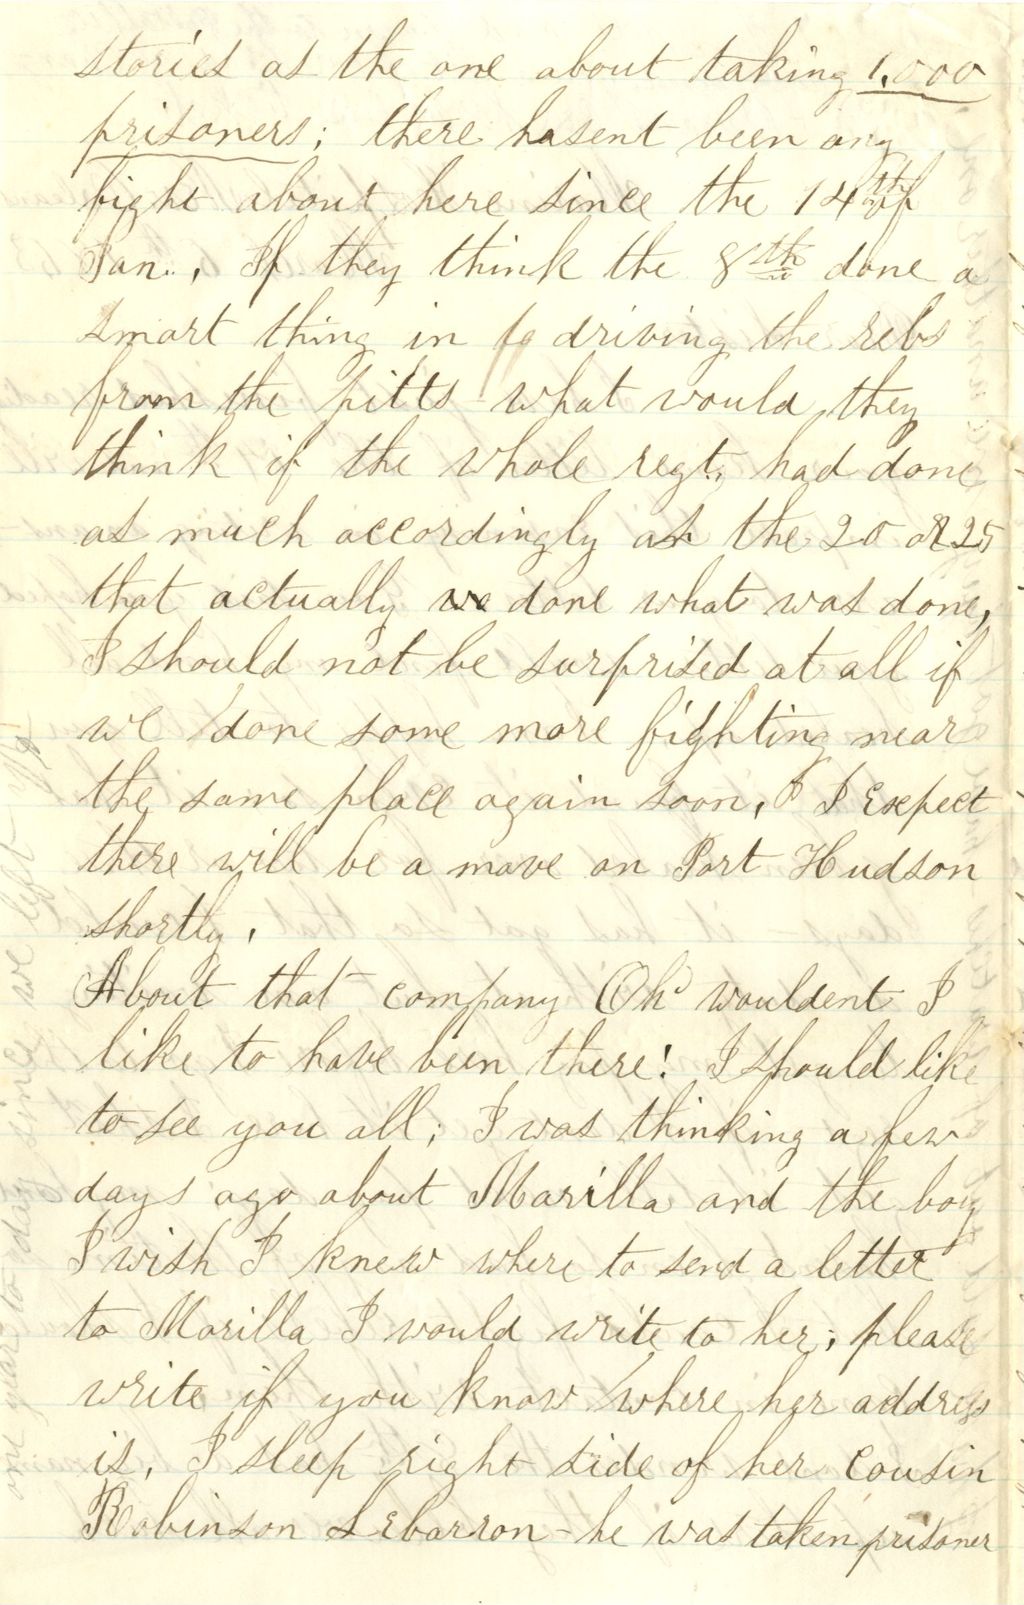 stories as the one about taking 1,000
prisoners; there hasent been any
fight about here since the 14th of
Jan., If they think the 8th done a
smart thing in driving the rebs
from the pitts what would they
think if the whole regt. had done
as much accordingly as the 20 or 25
that actually done what was done,
I should not be surprised at all if
we done some more fighting near
the same place again soon, I expect
there will be a move on Port Hudson
shortly.
About that company Oh wouldent I
like to have been there! I should like
to see you all; I was thinking a few
days ago about Marilla and the boy
I wish I knew where to send a letter
to Marilla I would write to her; please
write if you know where her address
is, I sleep right side of her cousin
Robinson Lebarron - he was taken prisoner
one year to day since we left